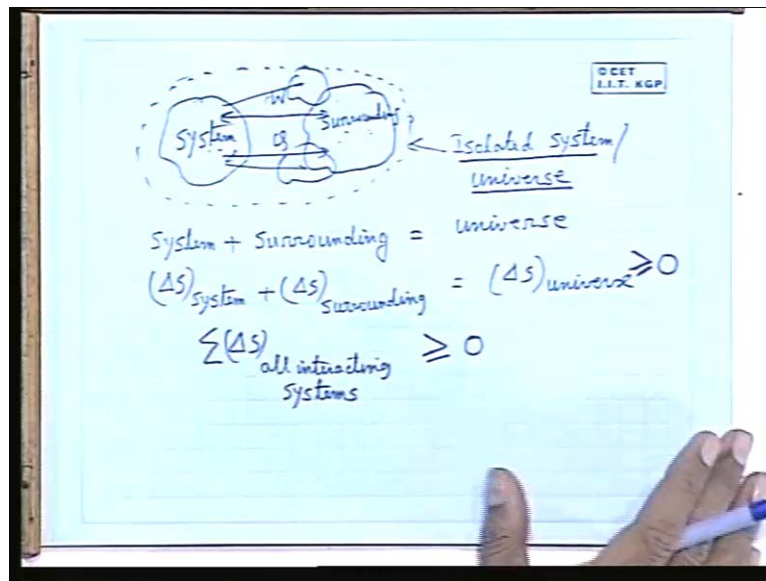 © CET
I.I.T. KGP
W
System
Surrounding
Q
Isolated system/
universe
System + Surrounding = universe
(ΔS)system + (ΔS)surrounding = (ΔS)universe ≥ 0
Σ(ΔS)all interacting systems ≥ 0